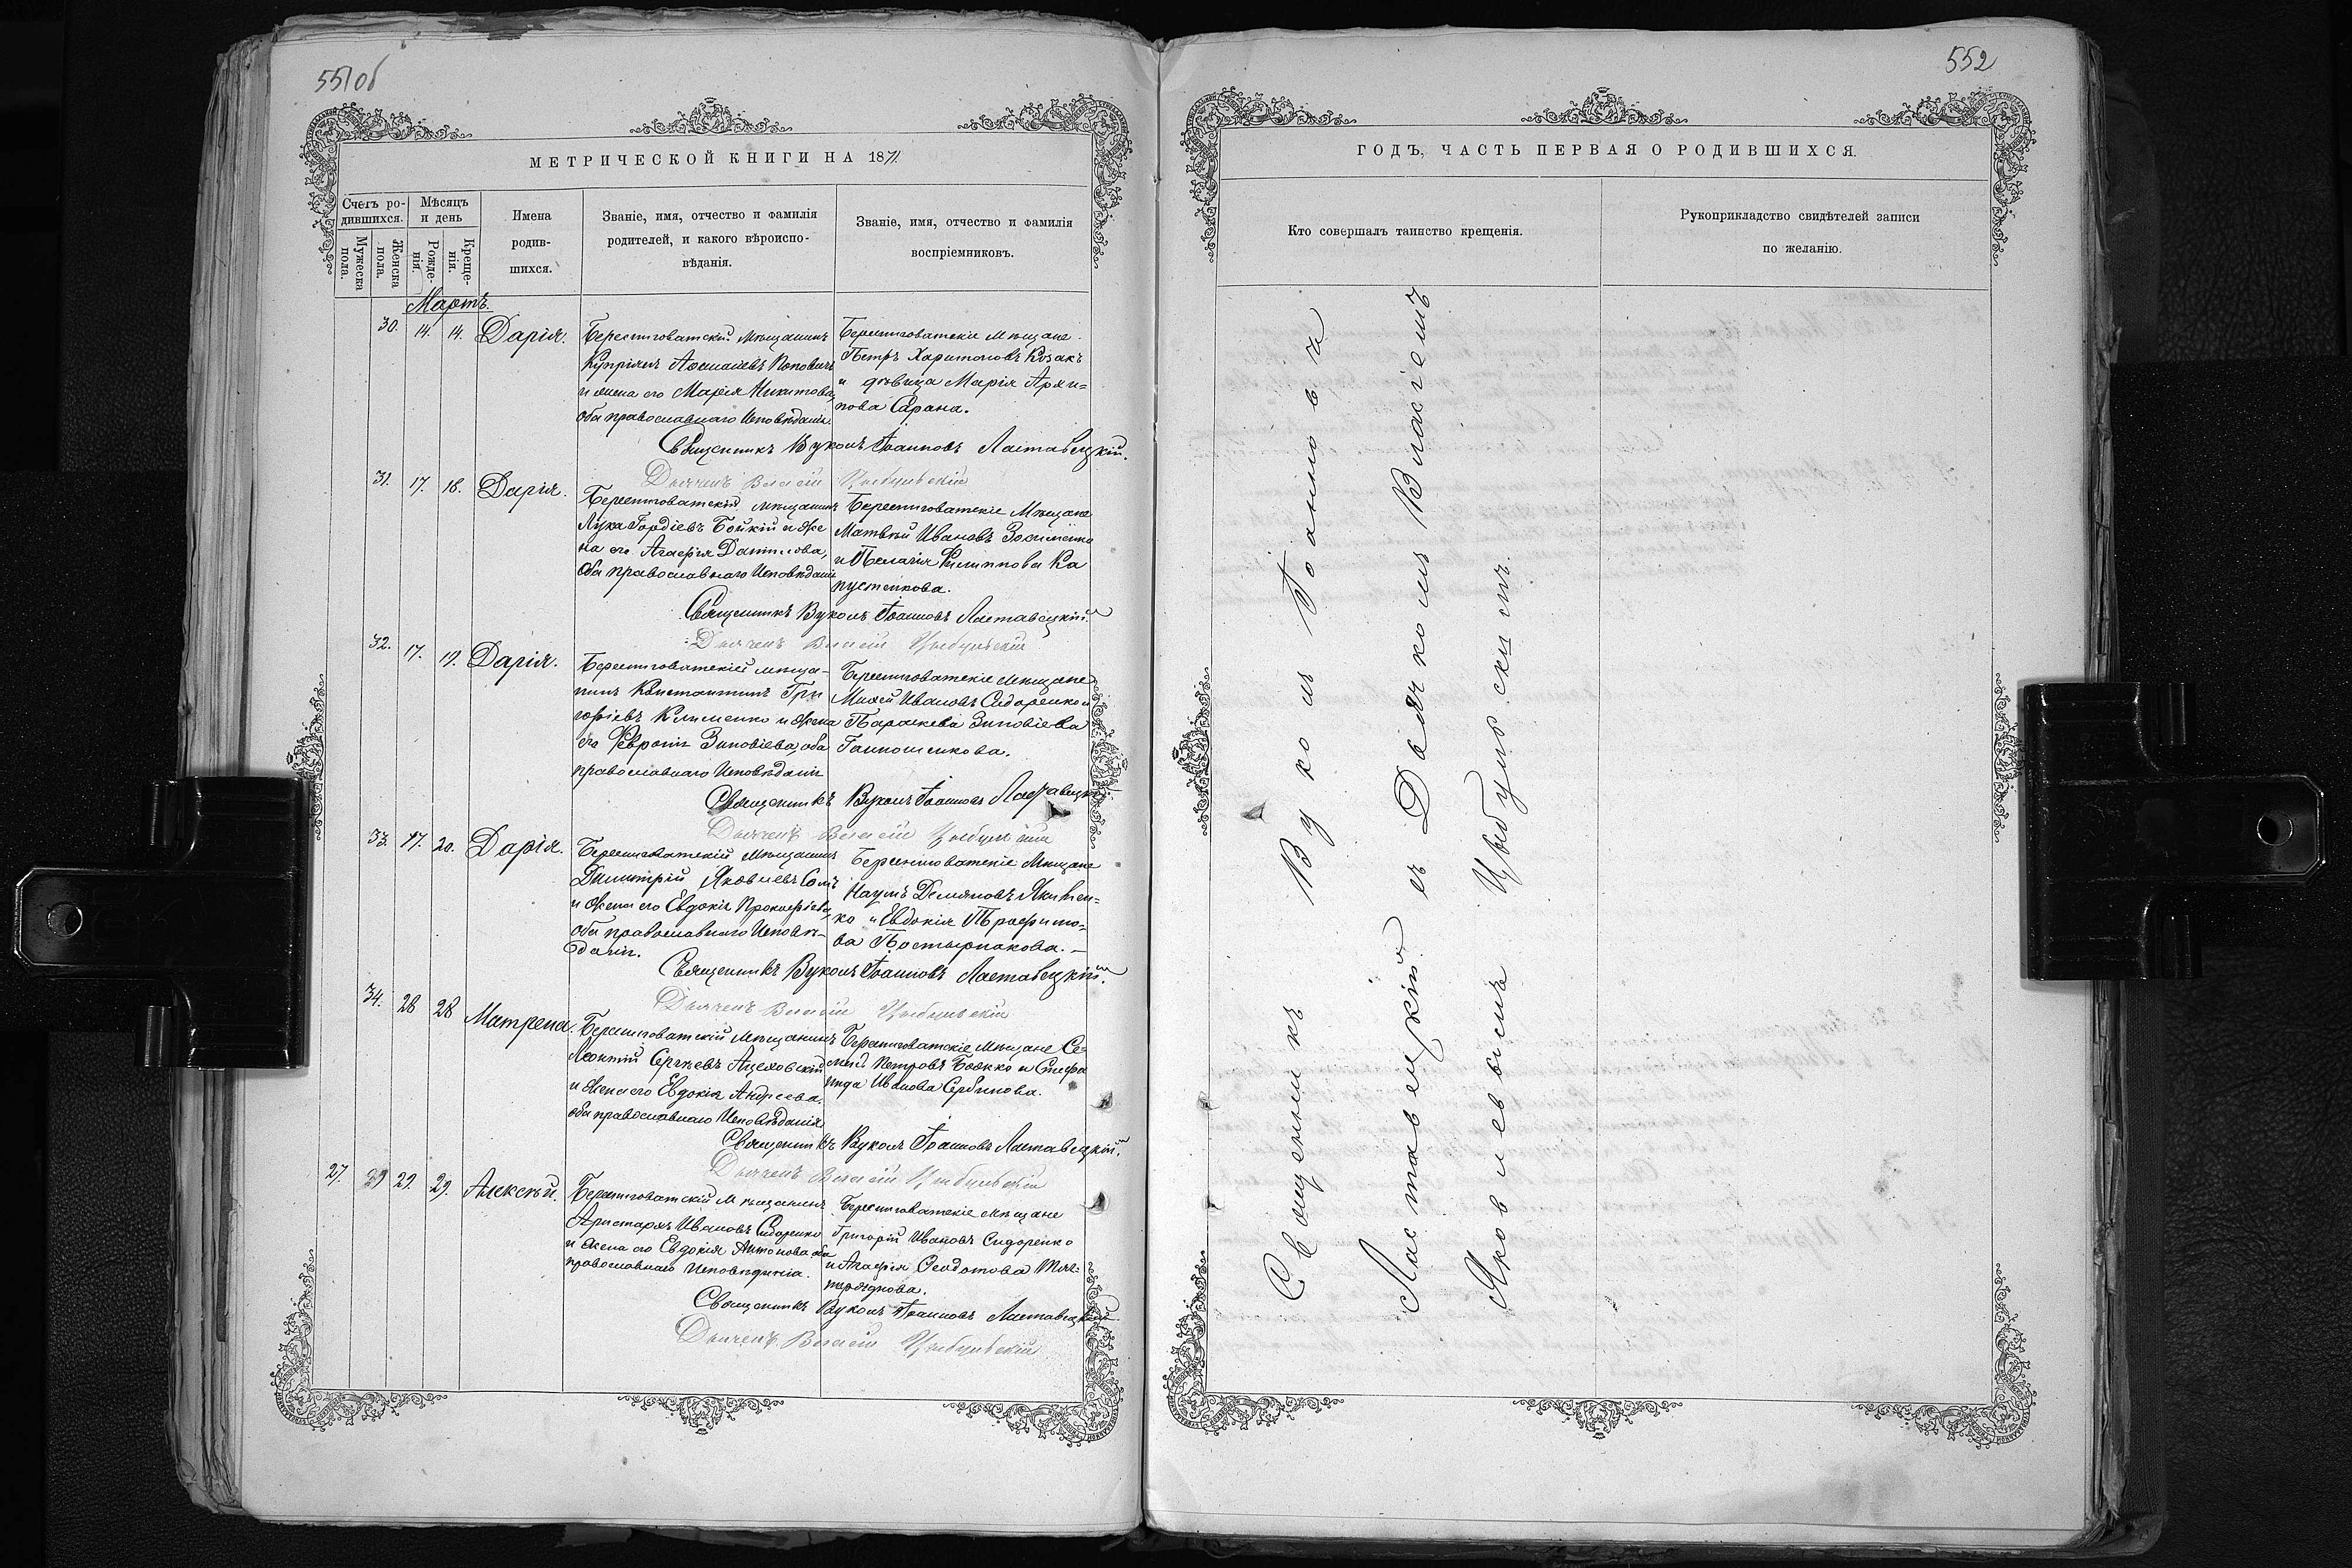 551об
МЕТРИЧЕСКОЙ КНИГИ НА 1871
Счетъ ро-
дившихся.
Мужеска
пола.
Женска
пола.
Мѣсяцъ
и день
Рожде-
нія.
Креще-
нія.
Имена
родив-
шихся.
Званіе, имя, отчество и фамилія
родителей, и какого вѣроиспо-
вѣданія.
Званіе, имя, отчество и фамилія
воспріемниковъ.
Мартъ.
30. 14. 14. Дарія.
Берестоватскій мѣщанинъ
Купріянъ Поповичъ
и жена его Марія Никитова,
оба православнаго исповѣданія.
Берестоватскіе мѣщане
Петръ Харитоновъ Козакъ
и дѣвица Марія Архи=
пова Сарана.
Священникъ Вуколъ Іоанновъ Ластавецкій.
Дьячекъ Власій Цыбульскій
31. 17. 18. Дарія.
Берестоватскій мѣщанинъ
Лука Гордіевъ Бойкій и же
на его Агафія Данилова,
оба православнаго исповѣданія
Берестоватскіе мѣщане
Матвѣй Ивановъ
и Пелагія Филиппова Ка
пустенкова.
Священникъ Вуколъ Іоанновъ Ластавецкій.
Дьячекъ Власій Цыбульскій
32. 17. 19. Дарія.
Берестоватскій мѣща-
нинъ Константинъ Гри
горіевъ Клименко и жена
его Февронія Зиновіева, оба
православнаго исповѣданія
Берестоватскіе мѣщане
Ивановъ Сидоренко и
Параскева Зиновіева
Священникъ Вуколъ Іоанновъ Ластавецкій.
Дьячекъ Власій Цыбульскій
33. 17. 20. Дарія.
Берестоватскій мѣщанинъ
Димитрій Яковлевъ Сомъ
и жена его Евдокія Прокофіева,
оба православнаго исповѣ-
данія.
Берестоватскіе мѣщане
Наумъ Демяновъ Якимен=
ко и Евдокія Трофимо=
ва Постырнакова.
Священникъ Вуколъ Іоанновъ Ластавецкій.
Дьячекъ Власій Цыбульскій
34. 28 28 Матрена.
Берестоватскій мѣщанинъ
Леонтій Сергѣевъ
и жена его Евдокія Андреева.
оба православнаго исповѣданія
Берестоватскіе мѣщане Се=
менъ Петровъ Божко и Стефа
нида Иванова Сербинова.
Священникъ Вуколъ Іоанновъ Ластавецкій.
Дьячекъ Власій Цыбульскій
27. 29. 29. Алексѣй.
Берестоватскій мѣщанинъ
Аристархъ Ивановъ Сидоренко
и жена его Евдокія Антонова оба
православнаго исповѣданія.
Берестоватскіе мѣщане
Григорій Ивановъ Сидоренко
и Агафія Феодотова
Священникъ Вуколъ Іоанновъ Ластавецкій.
Дьячекъ Власій Цыбульскій
552
ГОДЪ, ЧАСТЬ ПЕРВАЯ О РОДИВШИХСЯ.
Кто совершалъ таинство крещенія.
Рукоприкладство свидѣтелей записи
по желанію.
Священникъ Вуколъ Іоанновъ
Ластавецкій съ Дьячкомъ Власіемъ
Яковлевымъ Цыбульскимъ.